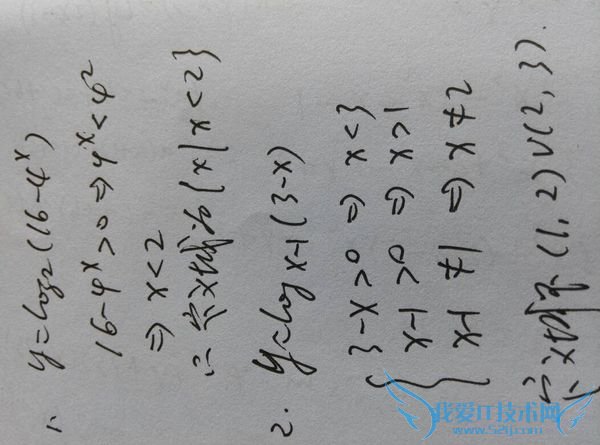 1. y=log₂(16-4ˣ)
16-4ˣ>0 ⇒ 4ˣ<4²
⇒ x<2
∴ 定义域为{x|x<2}
2. y=log x-1 (3-x)
{ 3-x>0 ⇒ x<3
x-1>0 ⇒ x>1
x-1≠1 ⇒ x≠2
∴ 定义域为 (1,2)∪(2,3).
我爱IT技术网
www.52ij.com